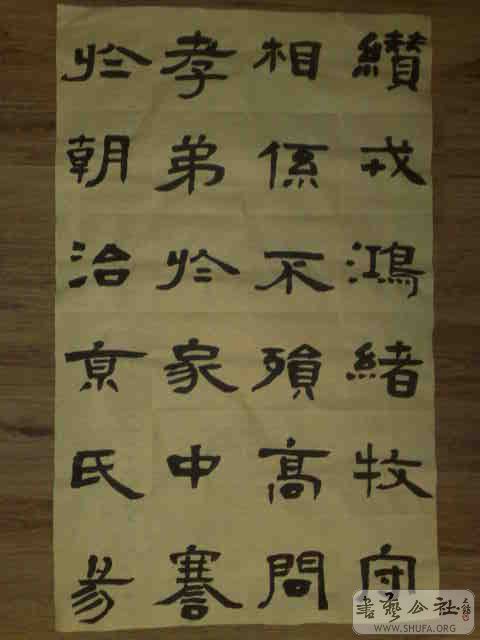 纘戎鴻緒牧守
相係不殞高問
孝弟於家中謇
於朝治京氏易
書藝公社
WWW.SHUFA.ORG